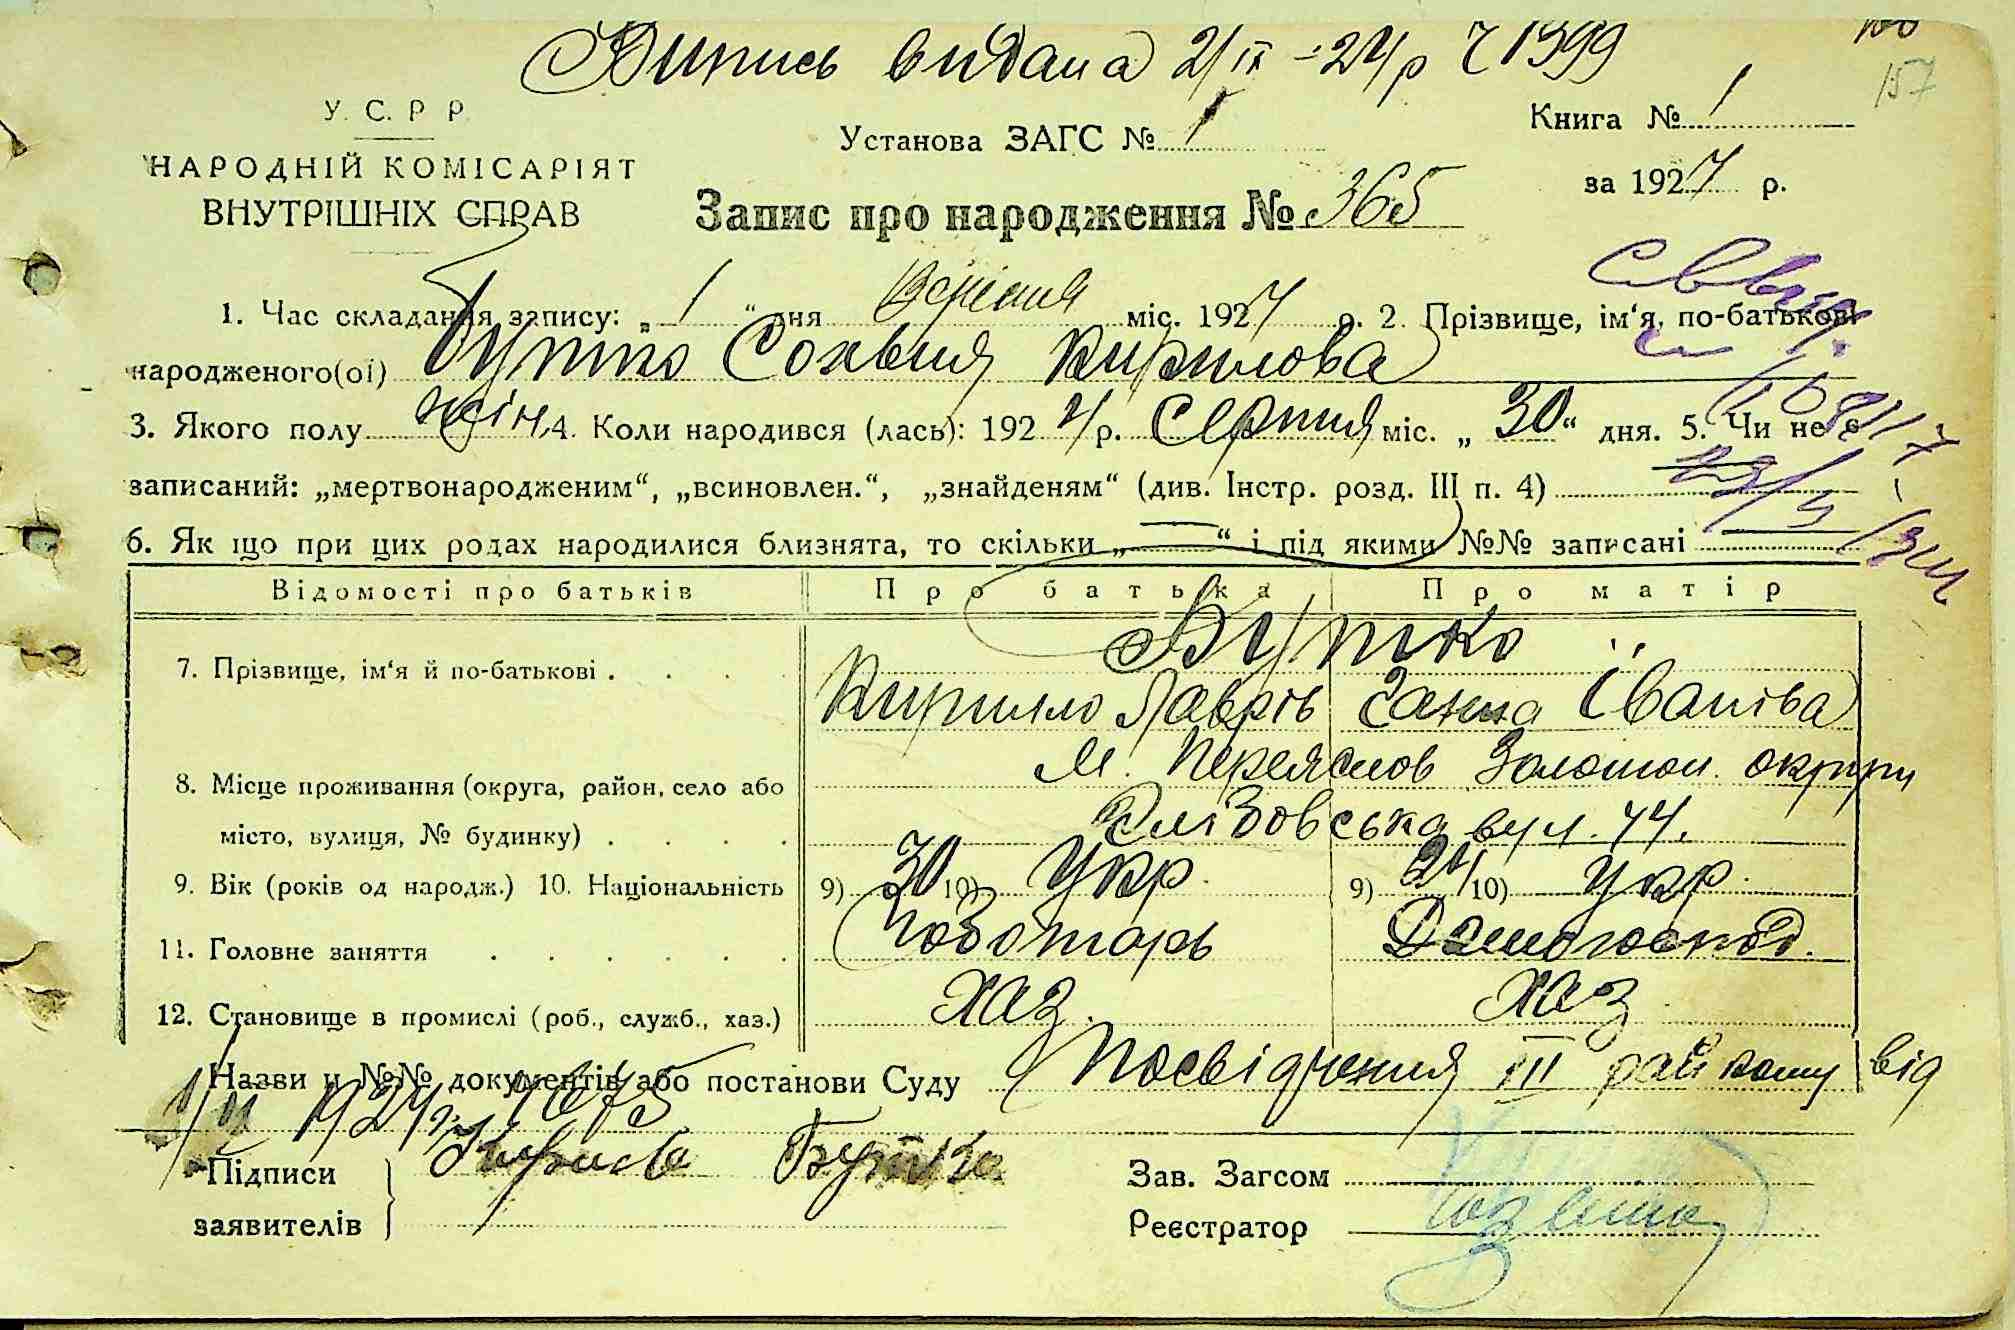 Випись видана 2/ІХ - 24 р Ч 1399
157
У. С. Р Р.
НАРОДНІЙ КОМІСАРІЯТ
ВНУТРІШНІХ СПРАВ
Установа ЗАГС № 1
Книга № 1
за 1924 р.
Запис про народження № 365
1. Час складання запису: „ 1 “ дня Вересня міс. 1924 р. 2. Прізвище, ім‘я, по-батькові
народженого(ої) Бутко Сохвия Кирилова
3. Якого полу жін. 4. Коли народився (лась): 1924 р. Серпня міс. „ 30 “ дня. 5. Чи не є
записаний: „мертвонародженим“, „всиновлен.“, „знайденям“ (див. Інстр. розд. III п. 4)
6. Як що при цих родах народилися близнята, то скільки „ — “ і під якими №№ записані
Відомості про батьків Про батька Про матір
Бутко
7. Прізвище, ім‘я й по-батькові . . . . Кирилло Лаврів Ганна Іванова
м. Переяслов Золотон. округи
8. Місце проживання (округа, район, село або
місто, вулиця, № будинку) . . . . вул. 44.
9. Вік (років од народж.) 10. Національність 9) 30 10) Укр. 9) 24 10) Укр.
11. Головне заняття . . . . . . Чоботарь Домогоспод.
12. Становище в промислі (роб., служб., хаз.) хаз. хаз.
Назви и №№ документів або постанови Суду Посвідчення III райкому від
1924 р. 1675
Підписи
заявителів
Кирило Бутко
Зав. Загсом
Реєстратор